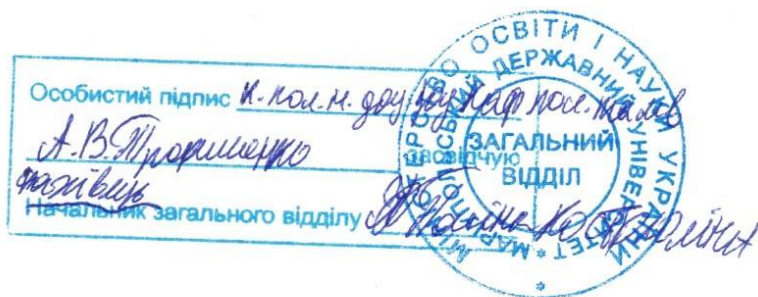 Особистий підпис к.пол.н. доц. каф. пол.
А.В.Трофименко засвідчую
фахівець
Начальник загального відділу
МІНІСТЕРСТВО ОСВІТИ І НАУКИ УКРАЇНИ
МАРІУПОЛЬСЬКИЙ ДЕРЖАВНИЙ УНІВЕРСИТЕТ
ЗАГАЛЬНИЙ
ВІДДІЛ